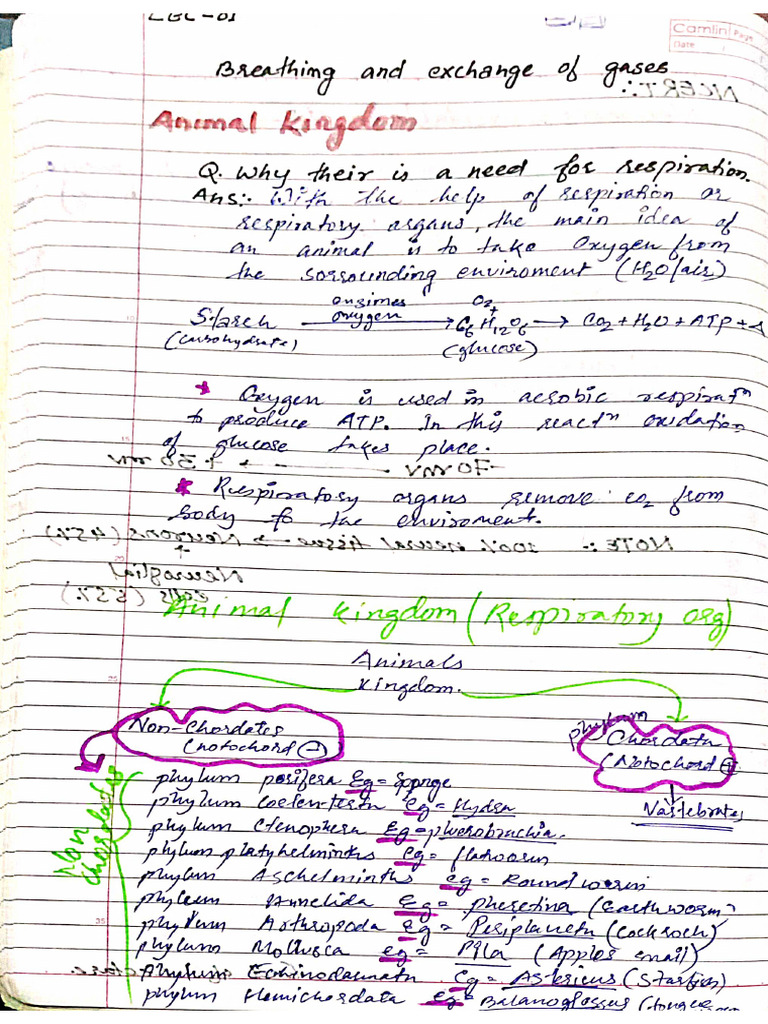 LEC-01
Camlin Page
Date
Breathing and exchange of gases
NCERT:
Animal Kingdom
Q. Why their is a need for respiration.
Ans:- With the help of respiration or
respiratory organs, the main idea of
an animal is to take Oxygen from
the sorsounding enviroment (H2O/air)
Starch (carbohydrate) enzimes oxygen → O2 + C6H12O6 (glucose) → CO2 + H2O + ATP + Δ
* Oxygen is used in aerobic respiratn
to produce ATP. In this reactn oxidation
of glucose takes place.
-70 mv + 30 mv
* Respiratory organs remove co2 from
body to the enviroment.
NOTE :- 100% neural tissue → Neurons (45%)
+
Neuroglial
cells (55%)
Animal kingdom (Respiratory org)
Animals
kingdom.
Non-Chordates
(notochord -)
phylum
Chordata
(Notochord +)
Vastebrates
Non chordates
phylum porifera Eg = Sponge
phylum Coelenterata Eg = Hydra
phylum Ctenophera Eg = pluerobrachia.
phylum platyhelminths Eg = flatworm
phylum Aschelminths eg = Roundworm
phylum Annelida Eg = pheretima (Earthworm)
phylum Arthropoda Eg = Periplaneta (Cockroch)
phylum Mollusca eg = Pila (Apples snail)
Phylum Echinodermata Eg = Asterius (Starfish)
phylum Hemichordata eg = Balanoglossus (tongue